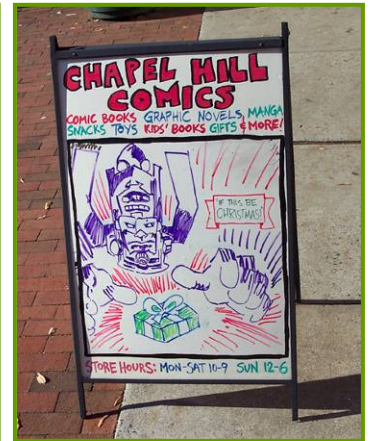 CHAPEL HILL
COMICS
COMIC BOOKS GRAPHIC NOVELS, MANGA
SNACKS TOYS KIDS' BOOKS GIFTS & MORE!
"IF THIS BE
CHRISTMAS!"
STORE HOURS: MON-SAT 10-9 SUN 12-6